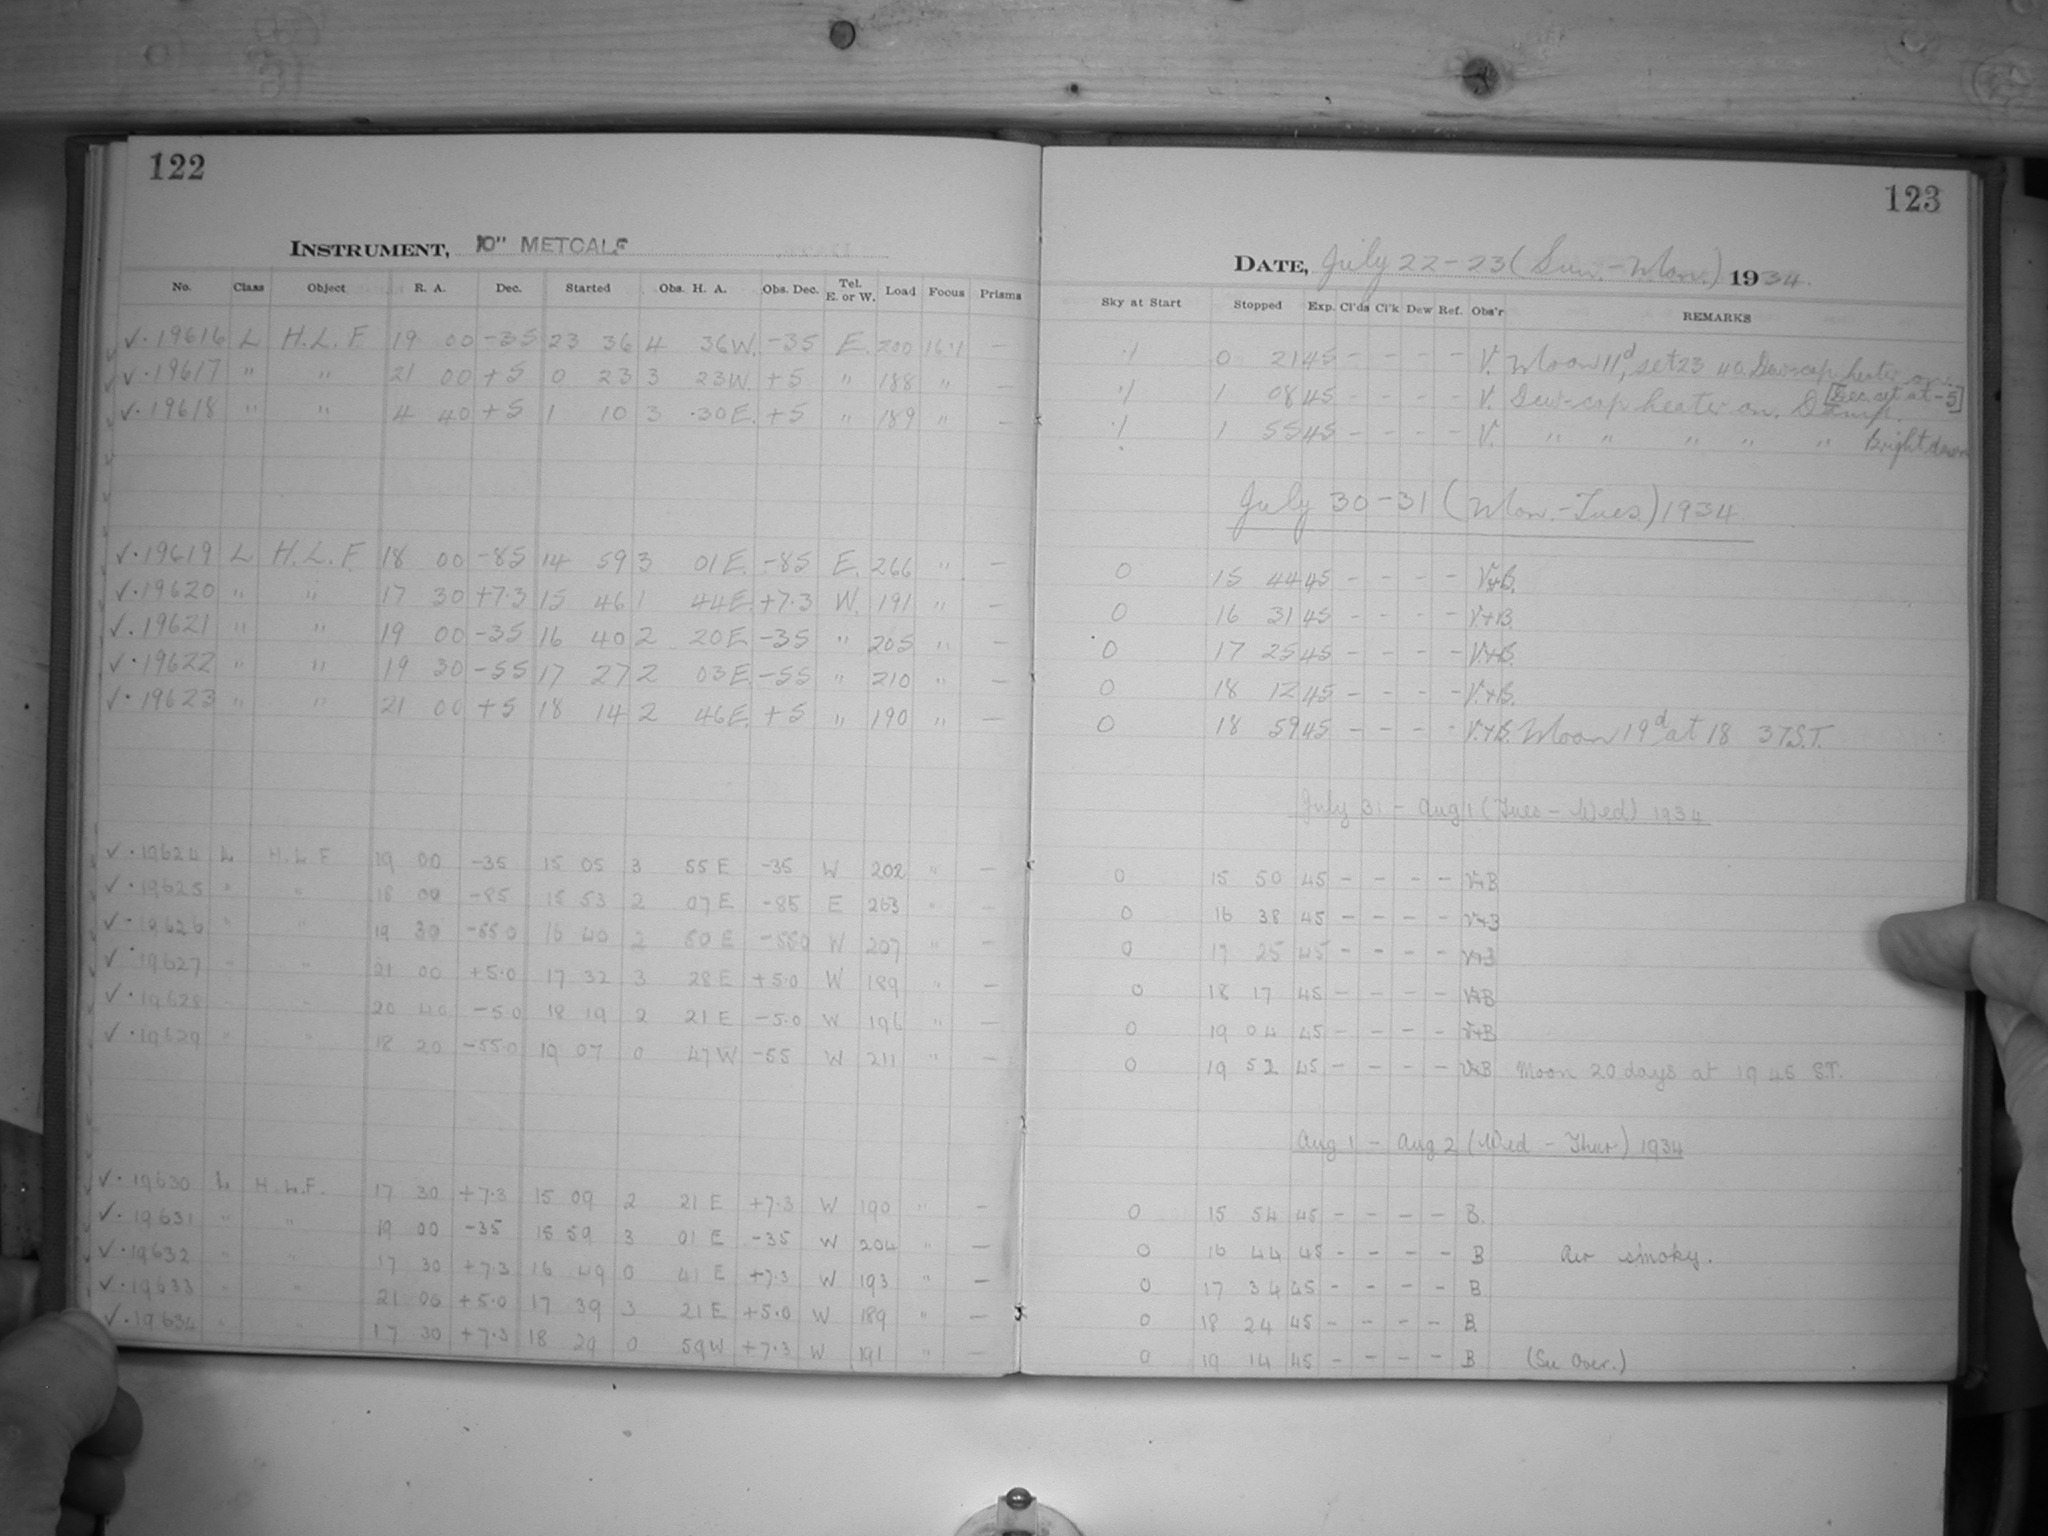 122
INSTRUMENT, 10" METCALF
No. Class Object R. A. Dec. Started Obs. H. A. Obs. Dec. Tel. E. or W. Load Focus Prisms
✓. 19616 L H.L.F. 19 00 -35 23 36 4 36W. -35 E. 200 16.1 —
✓. 19617 " " 21 00 +5 0 23 3 23W. +5 " 188 " —
✓. 19618 " " 4 40 +5 1 10 3 .30E. +5 " 189 " —
✓. 19619 L H.L.F. 18 00 -85 14 59 3 01E. -85 E. 266 " —
✓. 19620 " " 17 30 +7.3 15 46 1 44E. +7.3 W. 191 " —
✓. 19621 " " 19 00 -35 16 40 2 20E. -35 " 205 " —
✓. 19622 " " 19 30 -55 17 27 2 03E. -55 " 210 " —
✓. 19623 " " 21 00 +5 18 14 2 46E. +5 " 190 " —
✓. 19624 L H.L.F 19 00 -35 15 05 3 55 E -35 W 202 " —
✓. 19625 " " 18 00 -85 15 53 2 07 E -85 E 263 " —
✓. 19626 " " 19 30 -55 0 16 40 2 50 E -55 0 W 207 " —
✓. 19627 " " 21 00 +5.0 17 32 3 28 E +5.0 W 189 " —
✓. 19628 " " 20 40 -5.0 18 19 2 21 E -5.0 W 196 " —
✓. 19629 " " 18 20 -55.0 19 07 0 47 W -55 W 211 " —
✓. 19630 L H.L.F. 17 30 +7.3 15 09 2 21 E +7.3 W 190 " —
✓. 19631 " " 19 00 -35 15 59 3 01 E -35 W 204 " —
✓. 19632 " " 17 30 +7.3 16 49 0 41 E +7.3 W 193 " —
✓. 19633 " " 21 00 +5.0 17 39 3 21 E +5.0 W 189 " —
✓. 19634 " " 17 30 +7.3 18 29 0 59 W +7.3 W 191 " —
123
DATE, July 22-23 (Sun.-Mon.) 1934.
Sky at Start Stopped Exp. Cl'ds Cl'k Dew Ref. Obs'r REMARKS
0 21 45 - - - - V. Moon 11d, set 23 40. Dew-cap heater on.
1 08 45 - - - - V. Dew-cap heater on. Damp. [Dec. set at -5]
1 55 45 - - - - V. " " " " " Bright dawn
July 30-31 (Mon.-Tues.) 1934
0 15 44 45 - - - - V.+B.
0 16 31 45 - - - - V.+B.
0 17 25 45 - - - - V.+B.
0 18 12 45 - - - - V.+B.
0 18 59 45 - - - - V.+B. Moon 19d at 18 37 S.T.
July 31 - Aug 1 (Tues - Wed) 1934
0 15 50 45 - - - - V+B
0 16 38 45 - - - - V+B
0 17 25 45 - - - - V+B
0 18 17 45 - - - - V+B
0 19 04 45 - - - - V+B
0 19 52 45 - - - - V+B Moon 20 days at 19 45 S.T.
Aug 1 - Aug 2 (Wed - Thur) 1934
0 15 54 45 - - - - B.
0 16 44 45 - - - - B Air smoky.
0 17 34 45 - - - - B
0 18 24 45 - - - - B.
0 19 14 45 - - - - B (See Over.)